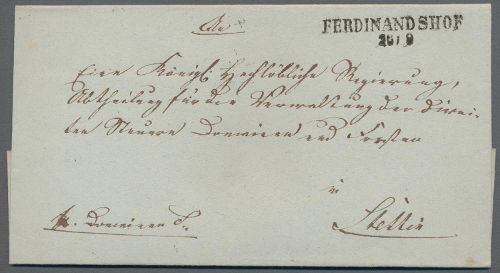 FERDINANDSHOF
26/9
An
Eine Königl. Hochlöbliche Regierung,
Abtheilung für die Verwaltung der direc-
ten Steuern Domainen und Forsten
in
Stettin
Domainen S.